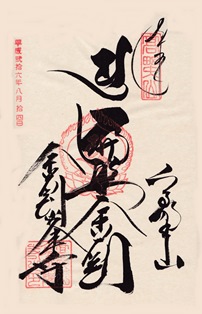 奉拝
高野山
遍照金剛
金剛峯寺
平成弐拾六年八月拾四日